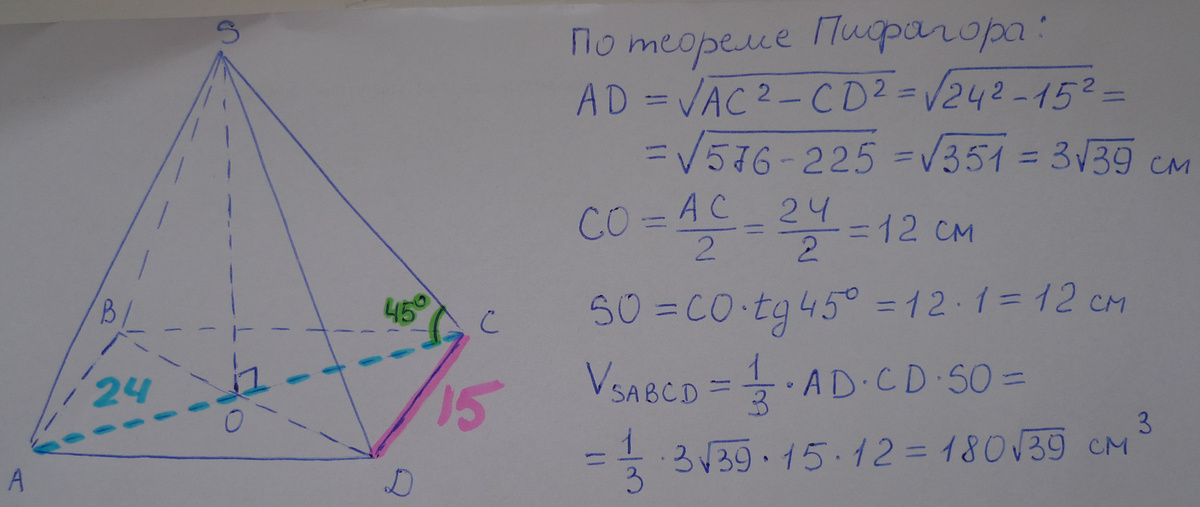 S
B
45°
C
24
15
O
A
D
По теореме Пифагора:
AD = √AC² - CD² = √24² - 15² =
= √576 - 225 = √351 = 3√39 см
CO = AC/2 = 24/2 = 12 см
SO = CO · tg 45° = 12 · 1 = 12 см
V_SABCD = 1/3 · AD · CD · SO =
= 1/3 · 3√39 · 15 · 12 = 180√39 см³